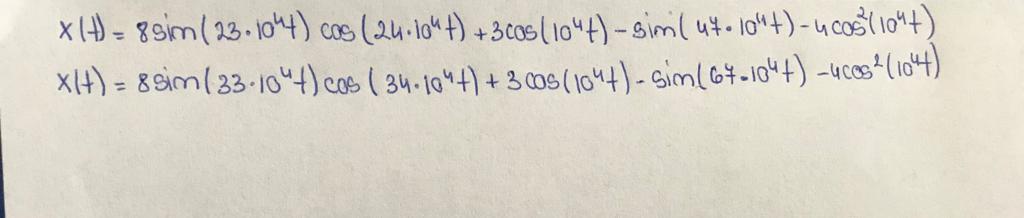 x(t) = 8sin(23·10⁴t) cos(24·10⁴t) + 3cos(10⁴t) - sin(47·10⁴t) - 4cos²(10⁴t)
x(t) = 8sin(33·10⁴t) cos(34·10⁴t) + 3cos(10⁴t) - sin(67·10⁴t) - 4cos²(10⁴t)